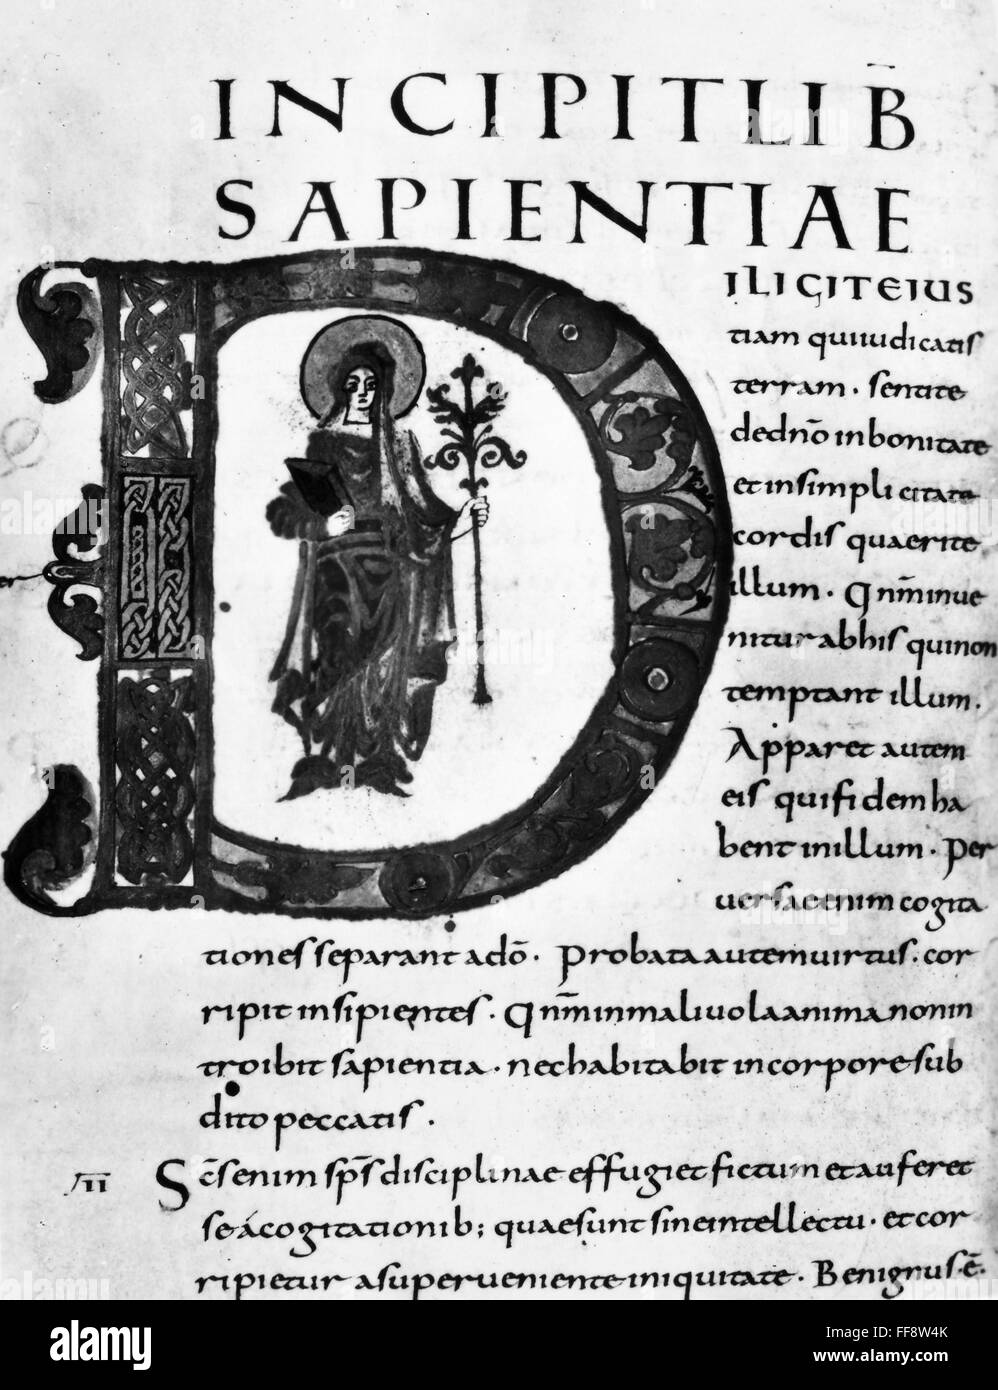 INCIPIT LIB̄
SAPIENTIAE
DILIGITE IUS
titiam qui iudicatis
terram · sentite
de dn̄o in bonitate
et in simplicitate
cordis quaerite
illum · Qn̄m inue
nitur ab his qui non
temptant illum ·
Apparet autem
eis qui fidem ha
bent in illum · Per
uersae enim cogita
tiones separant a dō · Probata autem uirtus · cor
ripit insipientes · Qn̄m in maliuola anima non in
troibit sapientia · nec habitabit in corpore sub
dito peccatis ·
II Sc̄s enim sp̄s disciplinae effugiet fictum et auferet
se a cogitationib; quae sunt sine intellectu · et cor
ripietur a superueniente iniquitate · Benignus ē ·
alamy
FF8W4K
www.alamy.com